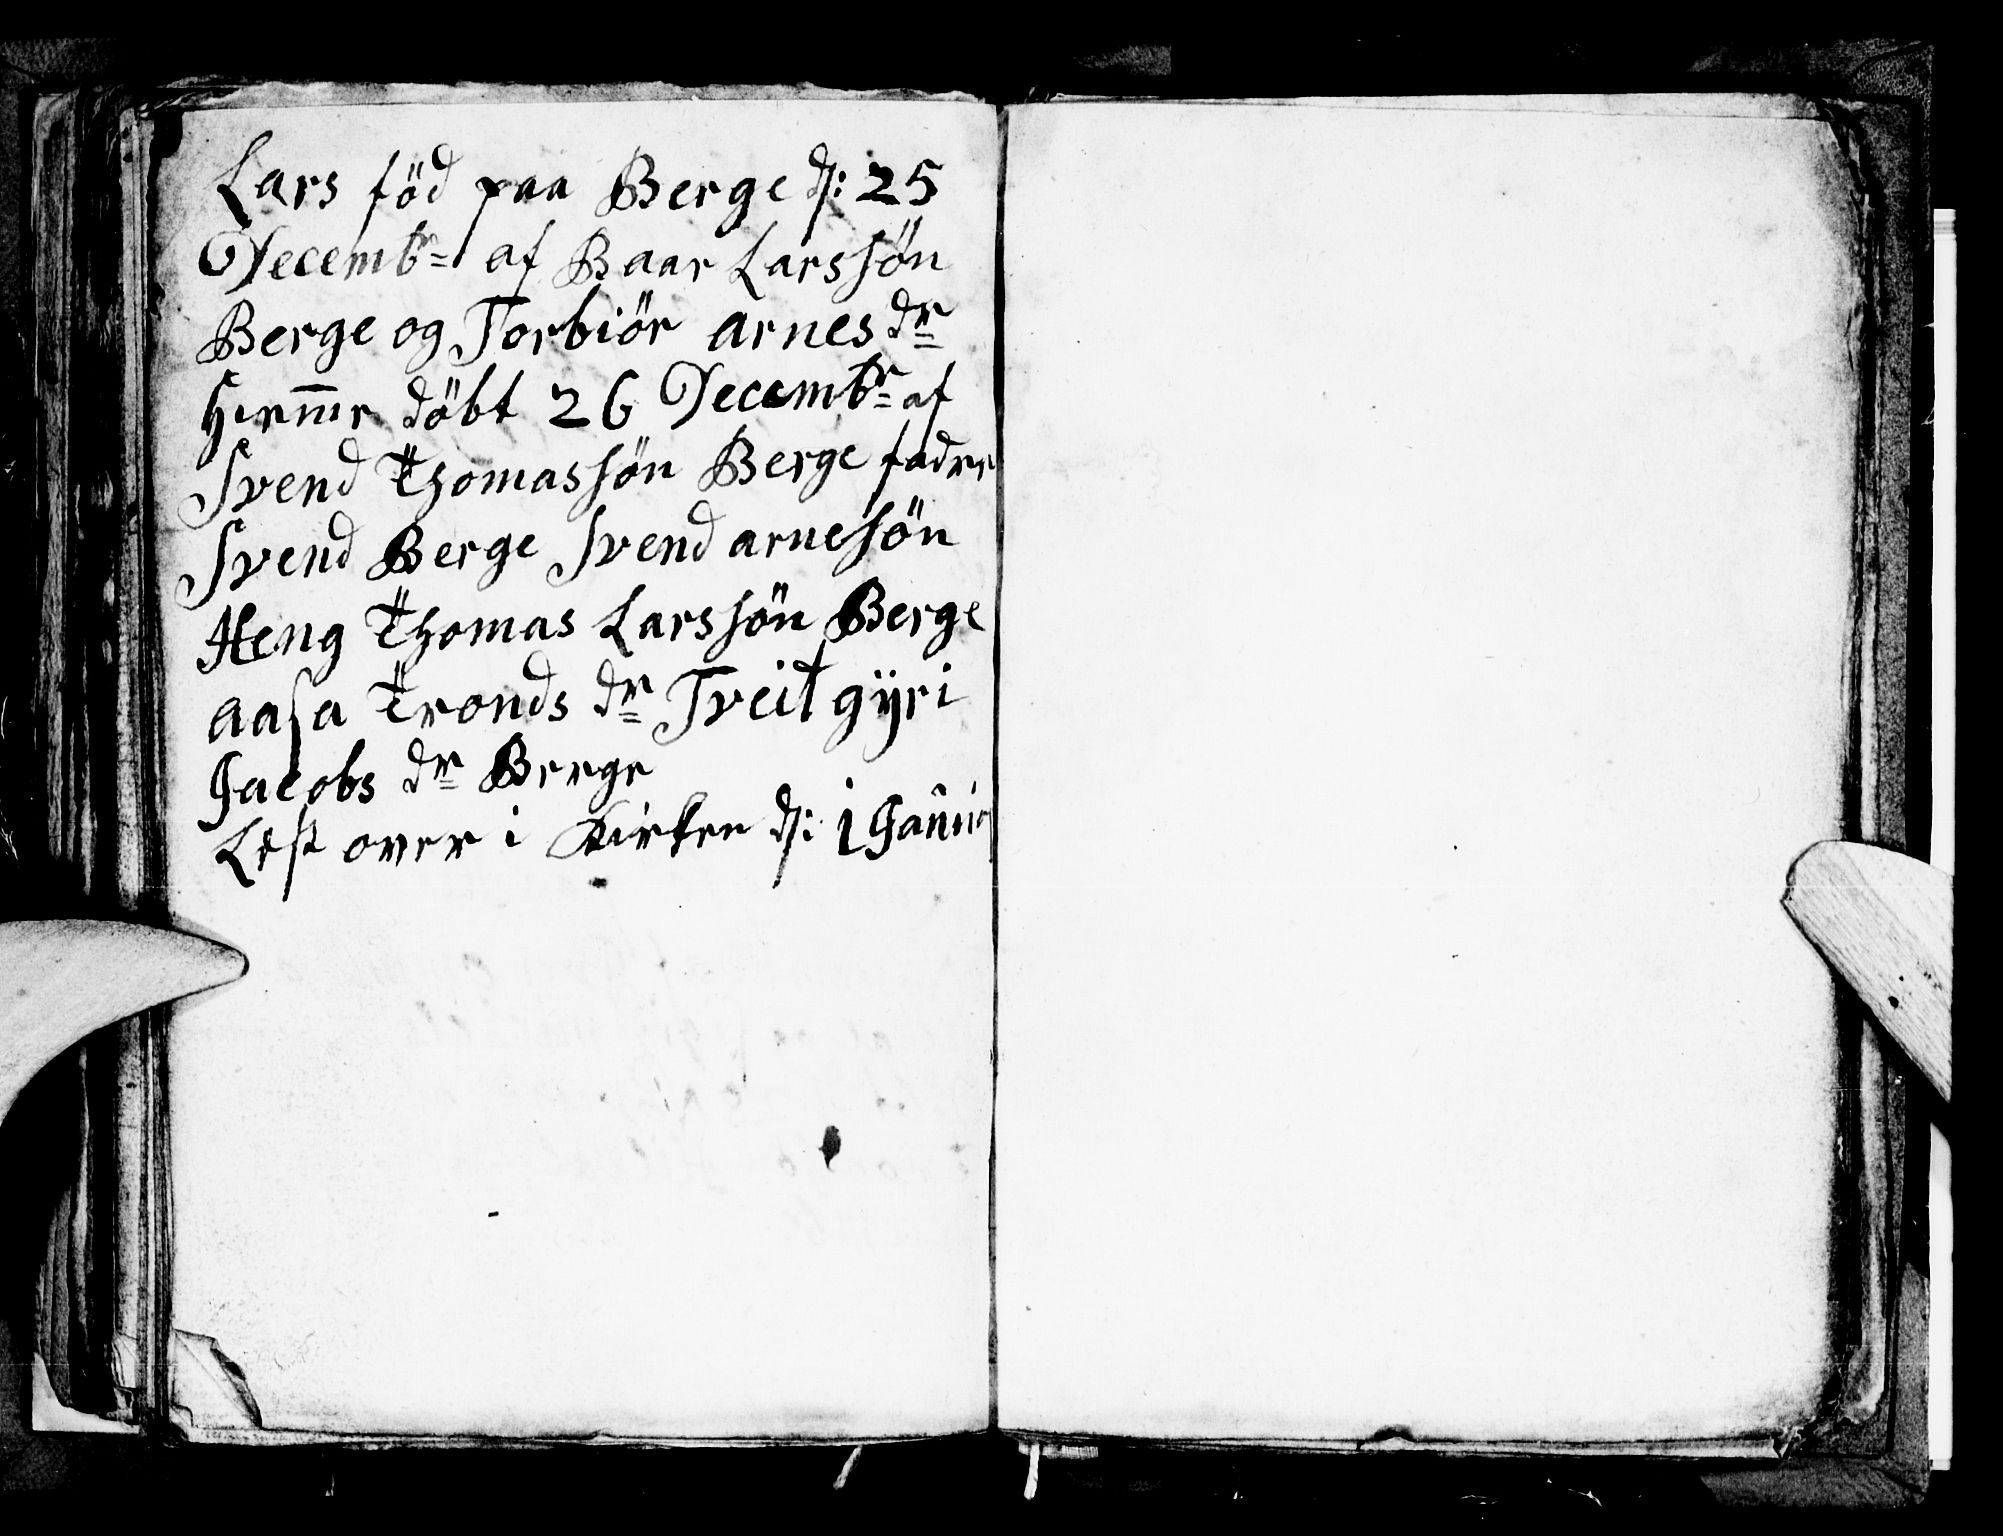 Lars föd paa Berge d: 25
Decembr= af Baar Larssön
Berge og Torbiör arnes dr
hiem̅e döbt 26 Decembr= af
Svend Thomassön Berge fadere
Svend Berge Svend arnesön
Heng Thomas Larssön Berge
aasa Tronds dr Tveit gÿri
Jacobs dr Berge
Lest over i Kirken d: 1 Januar